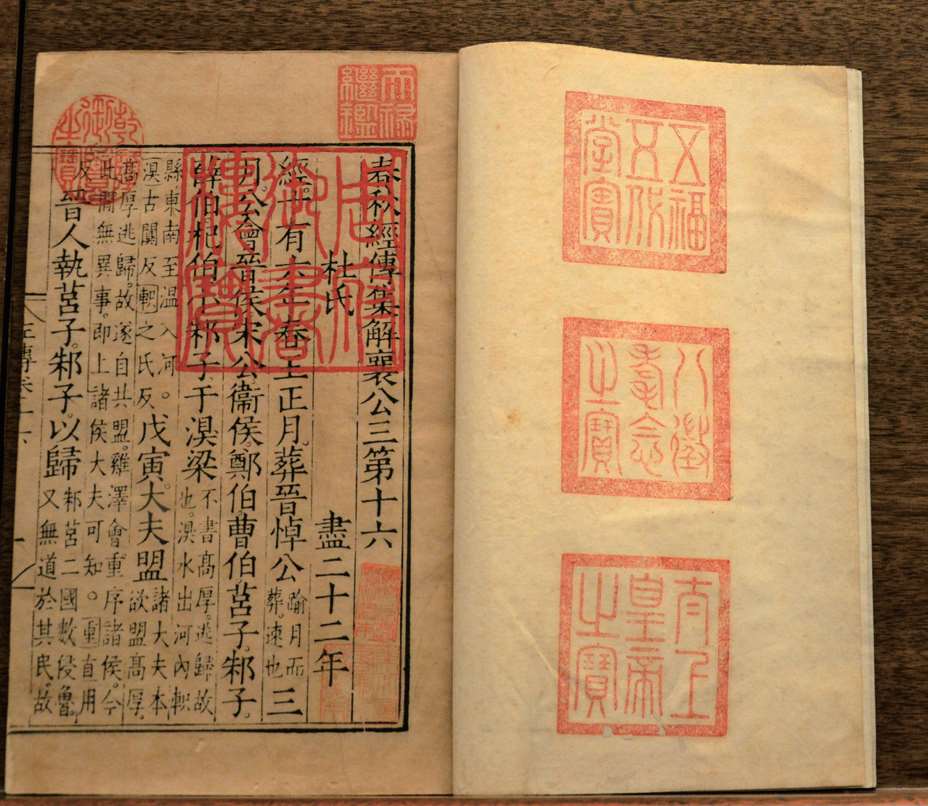 五福
五代
堂寶
八徵
耄念
之寶
太上
皇帝
之寶
天祿
繼鑑
乾隆
御覽
之寶
周府
御書
樓寶
春秋經傳集解襄公三第十六
杜氏 盡二十二年
經十有六年春王正月葬晉悼公踰月而葬速也三
月公會晉侯宋公衛侯鄭伯曹伯莒子邾子
薛伯杞伯小邾子于溴梁不書高厚逃歸故也溴水出河內軹
縣東南至溫入河。溴古闃反軹之氏反戊寅大夫盟諸大夫本欲盟高厚
高厚逃歸故遂自共盟雞澤會重序諸侯今此間無異事即上諸侯大夫可知。重直用
反晉人執莒子邾子以歸邾莒二國數侵魯又無道於其民故